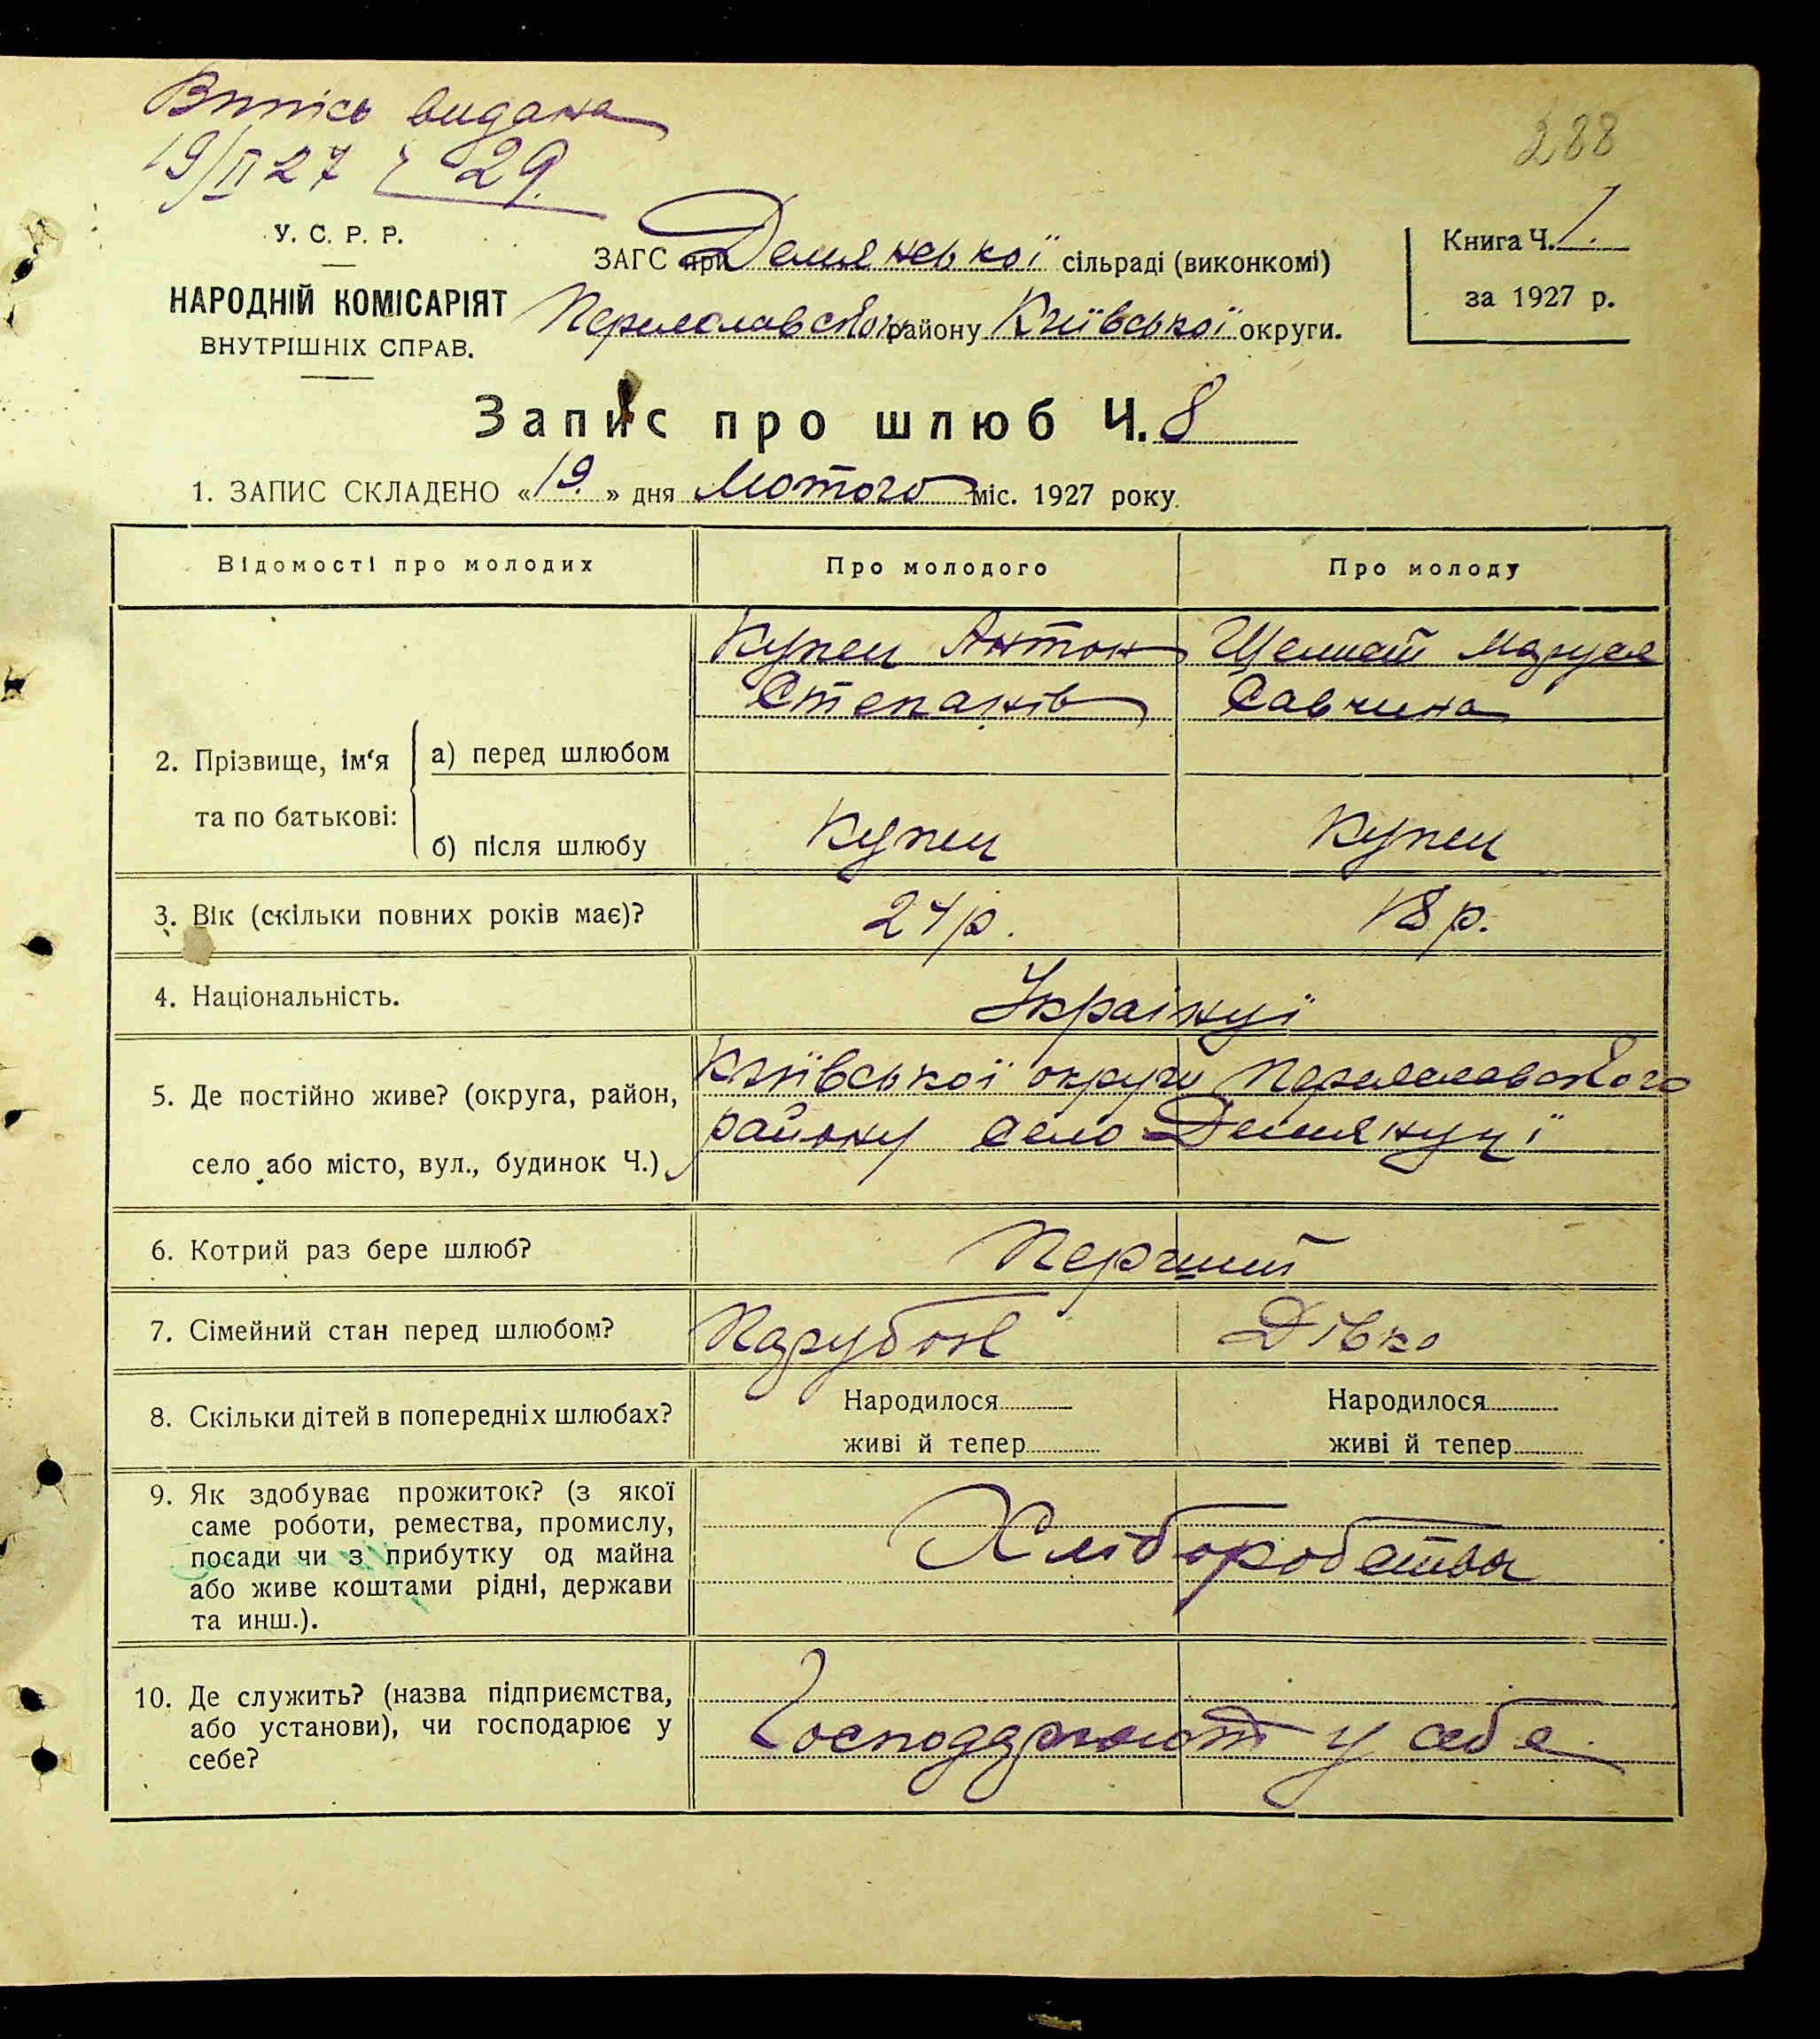 Випісь видана
19/II 27 Ч 29.
288
У. С. Р. Р.
НАРОДНІЙ КОМІСАРІЯТ
ВНУТРІШНІХ СПРАВ.
ЗАГС при Демянської сільраді (виконкомі)
Переяславського району Київської округи.
Книга Ч. 1.
за 1927 р.
Запис про шлюб Ч. 8
1. ЗАПИС СКЛАДЕНО «19.» дня Лютого міс. 1927 року.
Відомості про молодих Про молодого Про молоду
2. Прізвище, ім‘я та по батькові:
а) перед шлюбом
Купец Антон
Степанів
Маруся
Савчина
б) після шлюбу Купец Купец
3. Вік (скільки повних років має)? 24 р. 18 р.
4. Національність. Українці
5. Де постійно живе? (округа, район,
село або місто, вул., будинок Ч.)
Київської округи Переяславського
району село Демянці
6. Котрий раз бере шлюб? Перший
7. Сімейний стан перед шлюбом? Парубок Дівка
8. Скільки дітей в попередніх шлюбах?
Народилося Народилося
живі й тепер живі й тепер
9. Як здобуває прожиток? (з якої
саме роботи, ремества, промислу,
посади чи з прибутку од майна
або живе коштами рідні, держави
та инш.).
Хліборобства
10. Де служить? (назва підприємства,
або установи), чи господарює у
себе?
Господарюют у себе.